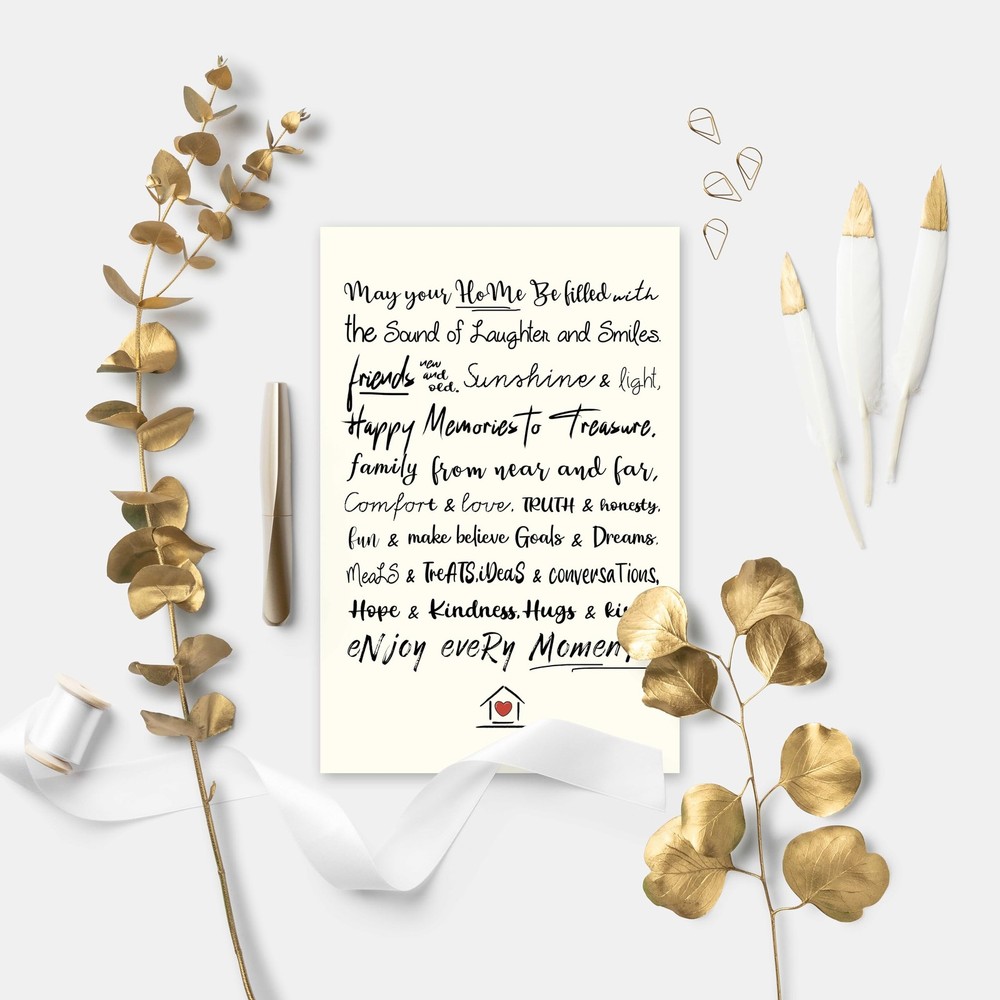 May your HoMe Be filled with
the Sound of Laughter and Smiles.
friends new and old. Sunshine & light,
Happy Memories To Treasure,
family from near and far,
Comfort & love. TRUTH & honesty.
fun & make believe Goals & Dreams.
MeaLS & TreATS.iDeaS & conversaTions,
Hope & Kindness. Hugs &
eNjoy eveRy